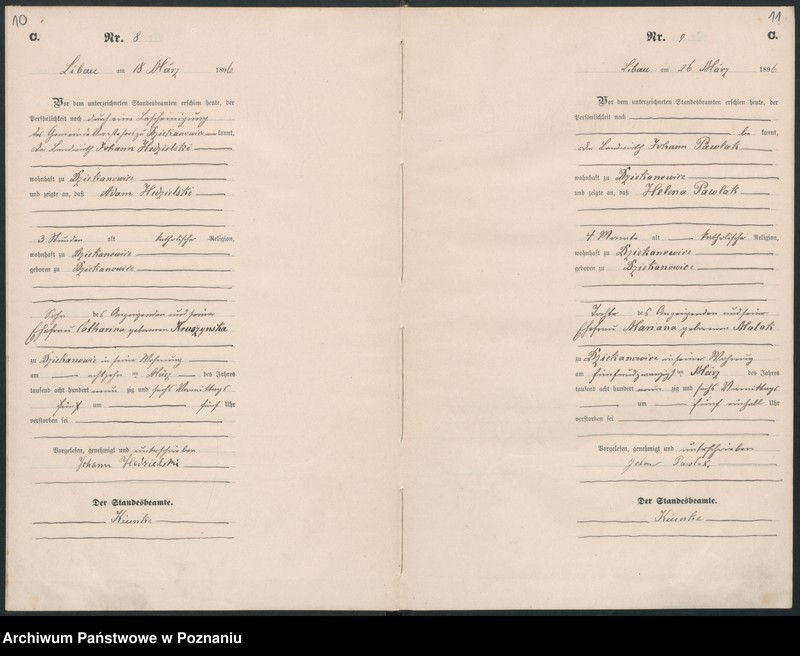 10
C.
Nr. 8
Libau am 18 März 1896
Vor dem unterzeichneten Standesbeamten erschien heute, der
Persönlichkeit nach durch eine Bescheinigung
des Gemeinde Vorstehers zu Dziekanowice kannt,
der Landwirth Johann Hedzielski
wohnhaft zu Dziekanowice
und zeigte an, daß Adam Hedzielski
3 Stunden alt katholischer Religion,
wohnhaft zu Dziekanowice
geboren zu Dziekanowice
Sohn des Anzeigenden und seiner
Ehefrau Catharina geborenen Kruszynska
zu Dziekanowice in seiner Wohnung
am achtzehn ten März des Jahres
tausend acht hundert neun zig und sechs Vormittags
fünf um fünf Uhr
verstorben sei
Vorgelesen, genehmigt und unterschrieben
Johann Hedzielski
Der Standesbeamte.
Kiunke
11
Nr. 9
C.
Libau am 26 März 1896
Vor dem unterzeichneten Standesbeamten erschien heute, der
Persönlichkeit nach
be kannt,
der Landwirth Johann Pawlak
wohnhaft zu Dziekanowice
und zeigte an, daß Helena Pawlak
4 Monate alt katholischer Religion,
wohnhaft zu Dziekanowice
geboren zu Dziekanowice
Tochter des Anzeigenden und seiner
Ehefrau Mariana geborenen Malak
zu Dziekanowice in seiner Wohnung
am fünfundzwanzigst en März des Jahres
tausend acht hundert neun zig und sechs Vormittags
um fünf einhalb Uhr
verstorben sei
Vorgelesen, genehmigt und unterschrieben
Johan Pawlak
Der Standesbeamte.
Kiunke
Archiwum Państwowe w Poznaniu